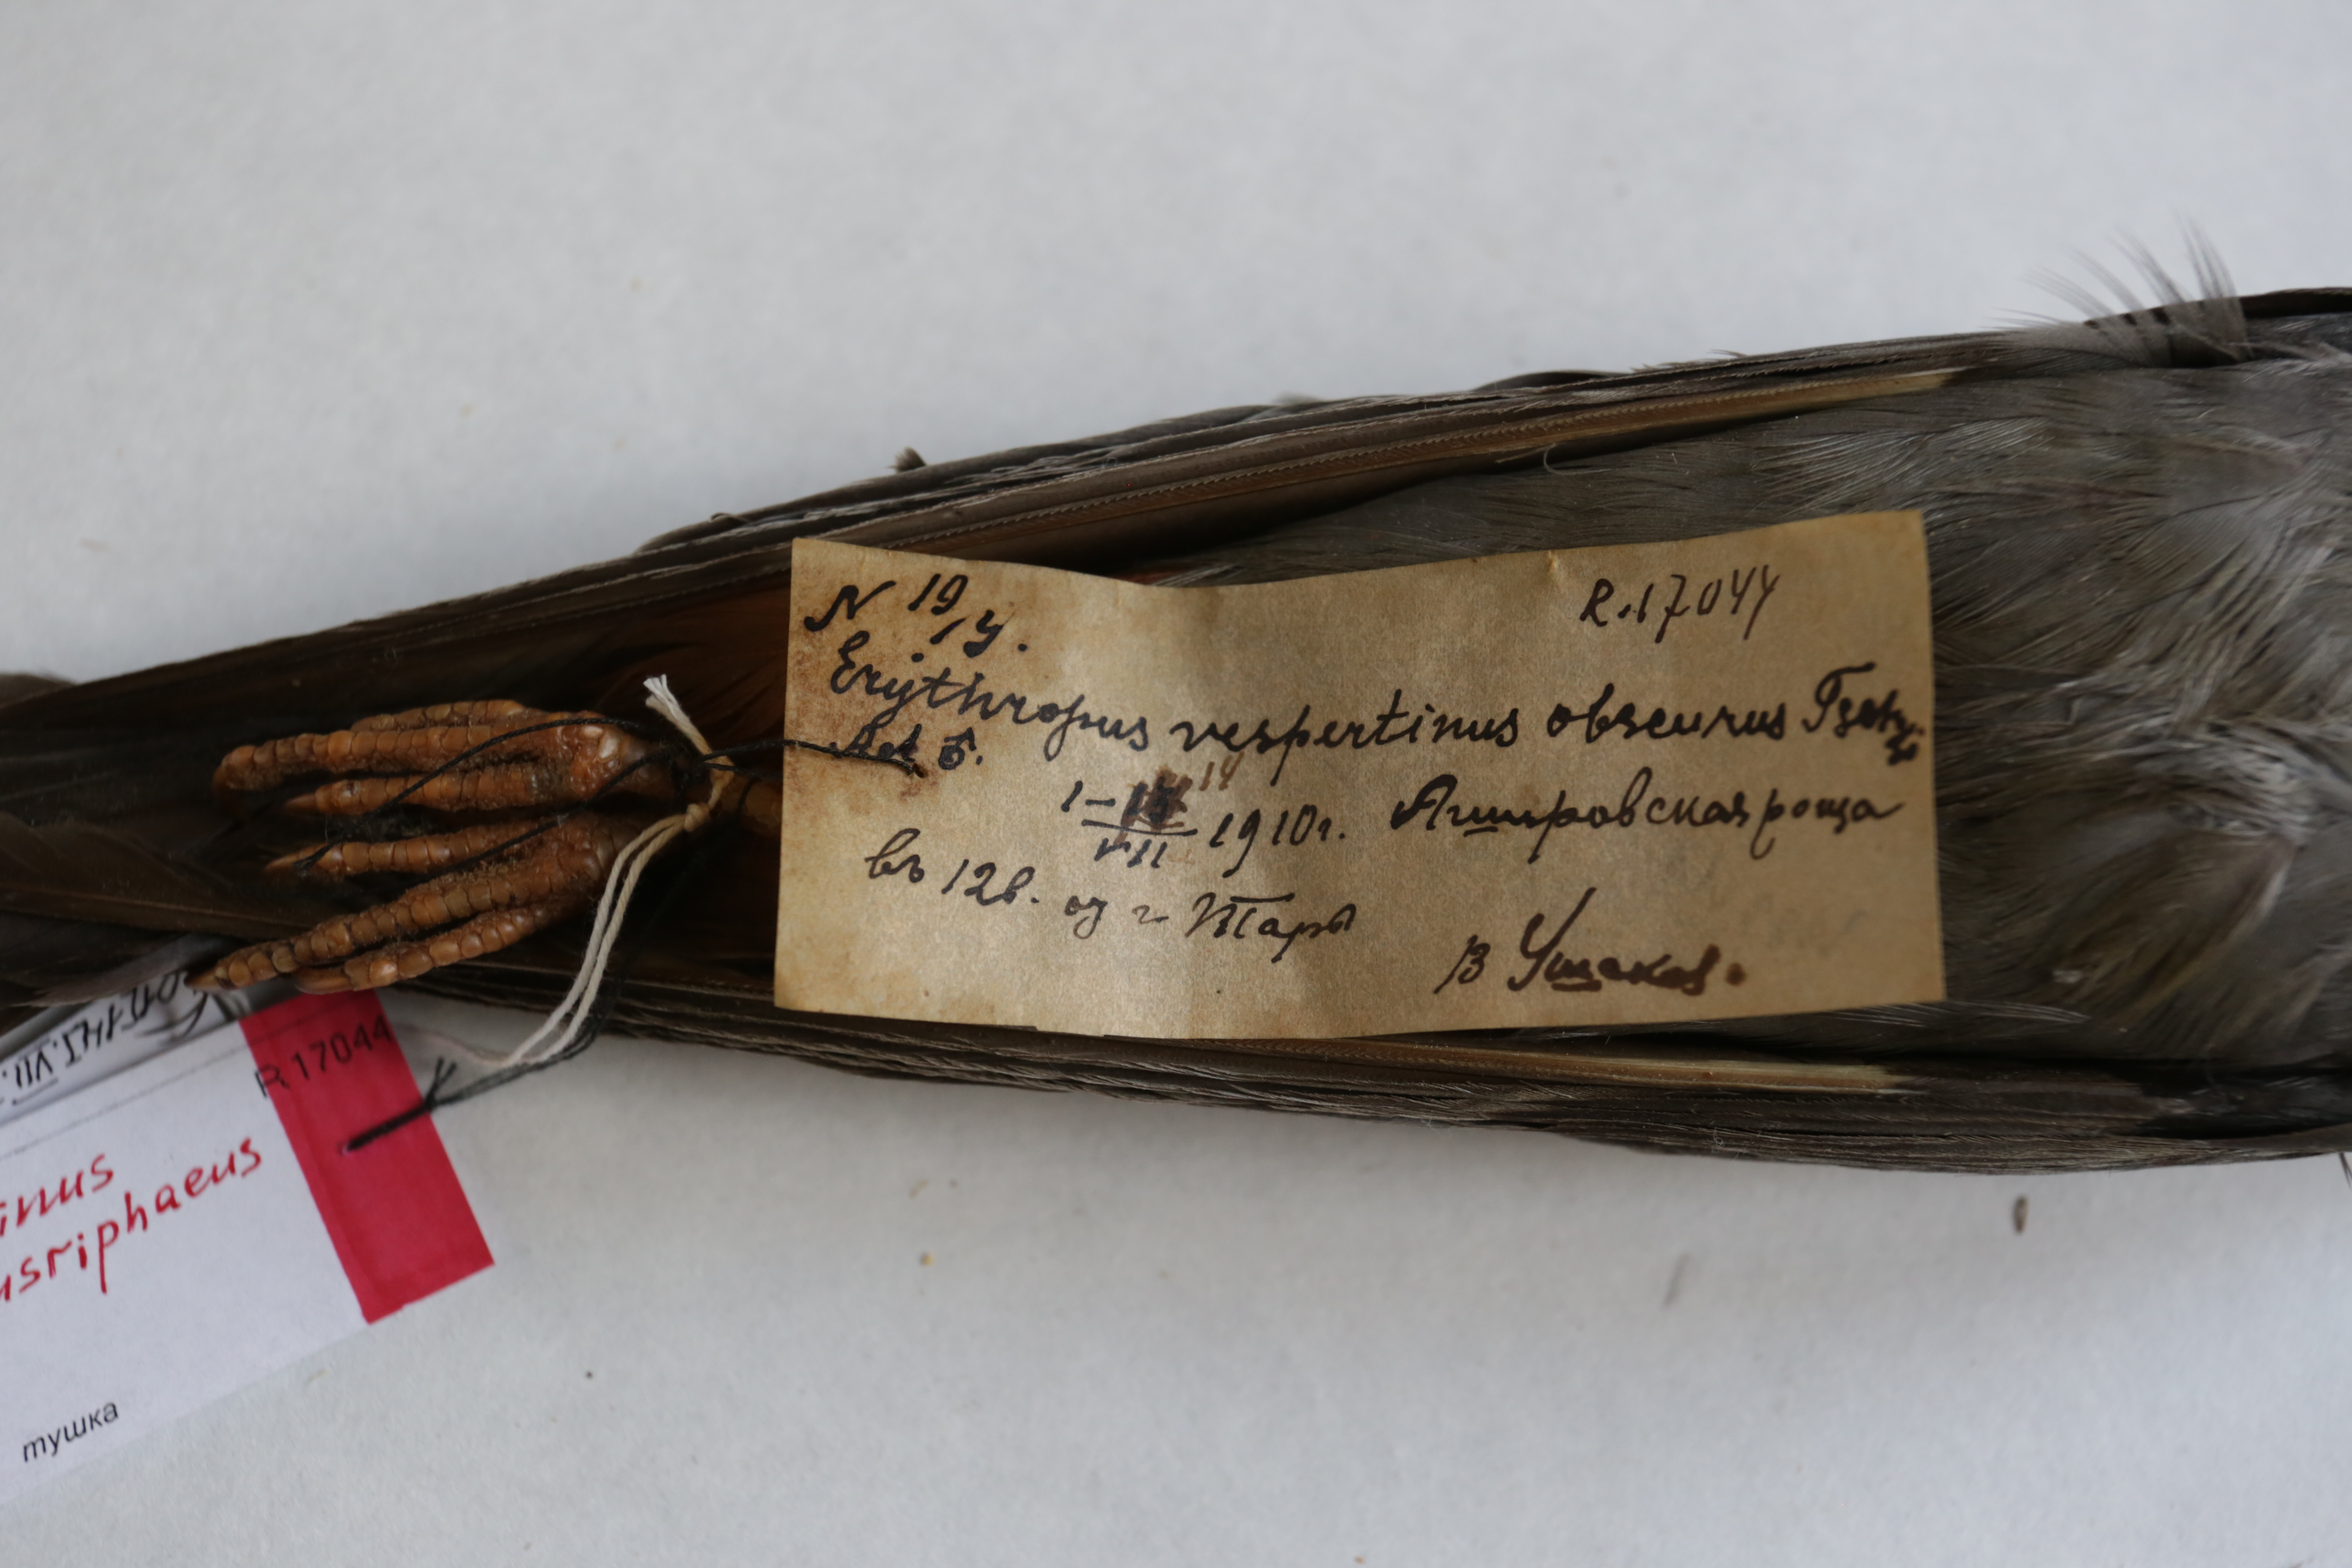 N 19/14.
R.17044
Erythropus vespertinus obscurus
Ad ♂.
1–14/VII 1910г. Ашировская роща
въ 12в. от г Тары
В Ушаков.
R. 17044
.VII.
inus
usriphaeus
тушка